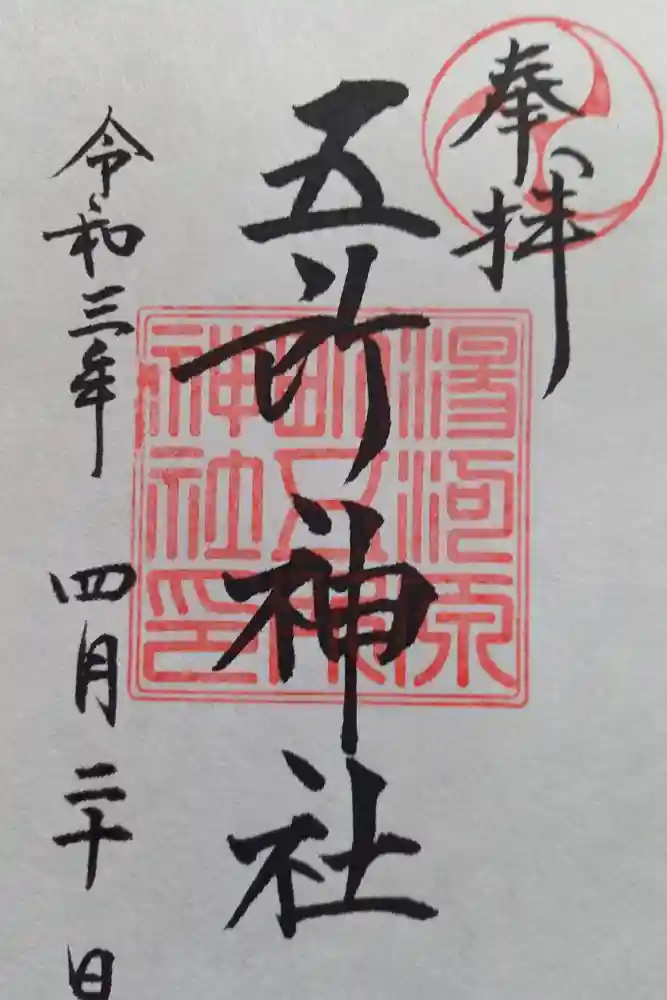 奉拝
五所神社
湯河原
明五所
神社印
令和三年 四月二十日